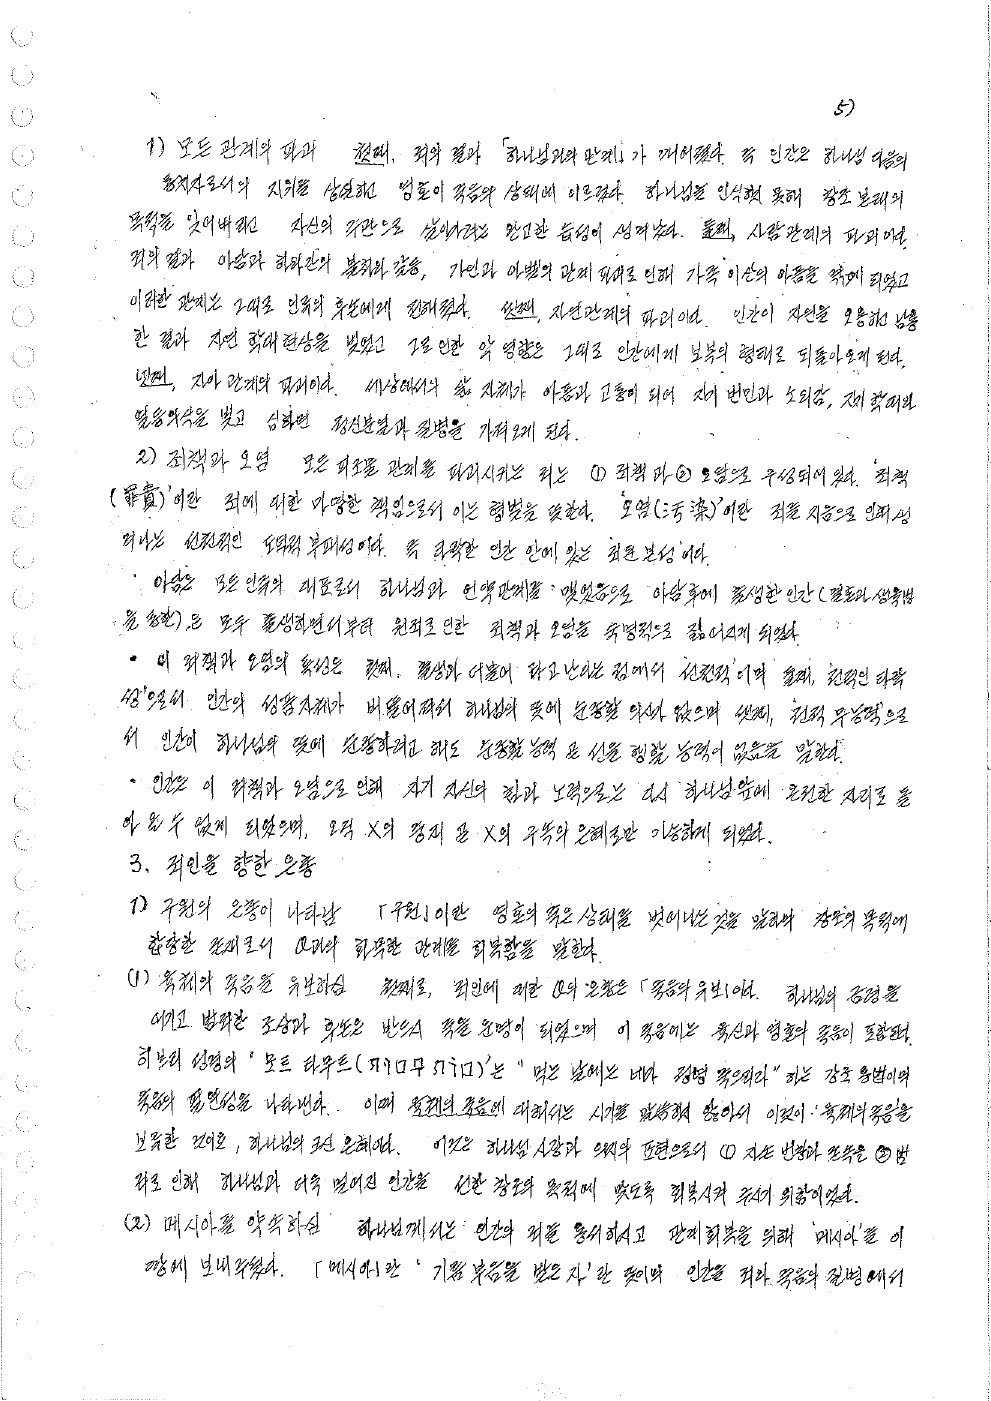 5)
1) 모든 관계의 파괴 첫째, 죄의 결과 「하나님과의 관계」가 깨어졌다. 즉 인간은 하나님 다음의
통치자로서의 지위를 상실하고 영혼이 죽음의 상태에 이르렀다. 하나님을 인식하지 못해 창조 본래의
목적을 잊어버리고 자신의 주관으로 살아가려는 완고한 습성이 생겨났다. 둘째, 사람관계의 파괴이다.
죄의 결과 아담과 하와간의 불화와 갈등, 가인과 아벨의 관계 파괴로 인해 가족 이산의 아픔을 겪게 되었고
이러한 관계는 그대로 인류의 후손에게 전해졌다. 셋째, 자연관계의 파괴이다. 인간이 자연을 오용하고 남용
한 결과 자연 학대현상을 빚었고 그로 인한 악영향은 그대로 인간에게 보복의 형태로 되돌아오게 된다.
넷째, 자아 관계의 파괴이다. 세상에서의 삶 자체가 아픔과 고통이 되어 자기 번민과 소외감, 자기 학대와
열등의식을 빚고 심하면 정신분열과 질병을 가져오게 된다.
2) 죄책과 오염 모든 피조물 관계를 파괴시키는 죄는 ① 죄책과 ② 오염으로 구성되어 있다. '죄책
(罪責)'이란 죄에 대한 마땅한 책임으로서 이는 형벌을 뜻한다. '오염(汚染)'이란 죄를 지음으로 인해 생
겨나는 선천적인 도덕적 부패성이다. 즉 타락한 인간 안에 있는 '죄된 본성'이다.
· 아담은 모든 인류의 대표로서 하나님과 언약관계를 맺었음으로 아담후에 출생한 인간(결혼과 생육법
을 통한)은 모두 출생하면서부터 원죄로 인한 죄책과 오염을 숙명적으로 짊어지게 되었다.
· 이 죄책과 오염의 특성은 첫째, 출생과 더불어 타고난다는 점에서 '선천적'이며 둘째, '전적인 타락
상'으로서 인간의 성품자체가 비뚤어져서 하나님의 뜻에 순종할 의사가 없으며 셋째, '전적 무능력'으로
서 인간이 하나님의 뜻에 순종하려고 해도 순종할 능력 곧 선을 행할 능력이 없음을 말한다.
· 인간은 이 죄책과 오염으로 인해 자기 자신의 힘과 노력으로는 다시 하나님앞에 온전한 자리로 돌
아 올 수 없게 되었으며, 오직 X의 중재 곧 X의 구속의 은혜로만 가능하게 되었다.
3. 죄인을 향한 은총
1) 구원의 은총이 나타남 「구원」이란 영혼의 죽은 상태를 벗어나는 것을 말하며 창조의 목적에
합당한 존재로서 과의 화목한 관계를 회복함을 말한다.
(1) 육체의 죽음을 유보하심 첫째로, 죄인에 대한 의 은총은 「죽음의 유보」이다. 하나님의 금령을
어기고 범죄한 조상과 후손은 반드시 죽을 운명이 되었으며 이 죽음에는 육신과 영혼의 죽음이 포함된다.
히브리 성경의 '모트 타무트( )'는 "먹는 날에는 네가 정녕 죽으리라"하는 강조 용법이며
죽음의 필연성을 나타낸다. 이때 육체의 죽음에 대해서는 시기를 말씀하지 않아서 이것이 '육체의 죽음'을
보류한 것이요, 하나님의 크신 은혜이다. 이것은 하나님 사랑과 의의 표현으로서 ① 자손 번창과 존속을 ② 범
죄로 인해 하나님과 더욱 멀어진 인간을 선한 창조의 목적에 맞도록 회복시켜 주시기 위함이었다.
(2) 메시아를 약속하심 하나님께서는 인간의 죄를 용서하시고 관계회복을 위해 '메시아'를 이
땅에 보내주셨다. 「메시아」란 '기름 부음을 받은 자'란 뜻이며 인간을 죄와 죽음의 질병에서